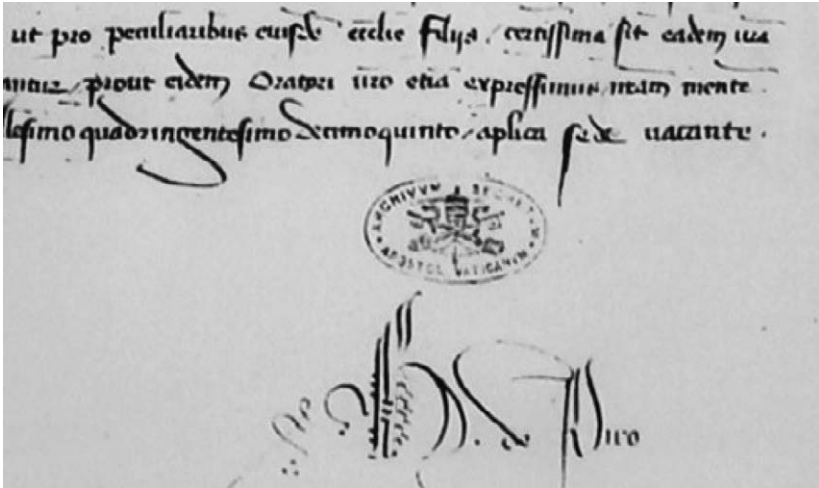 ut pro peculiaribus eiusde ecclie filijs, certissima sit eadem ura
prout eidem Oratori uro etia expressimus ntam mente.
lesimo quadringentesimo decimoquinto, aplica sede uacante.
ARCHIVVM SECRETVM
APOSTOL. VATICANVM
de Piro